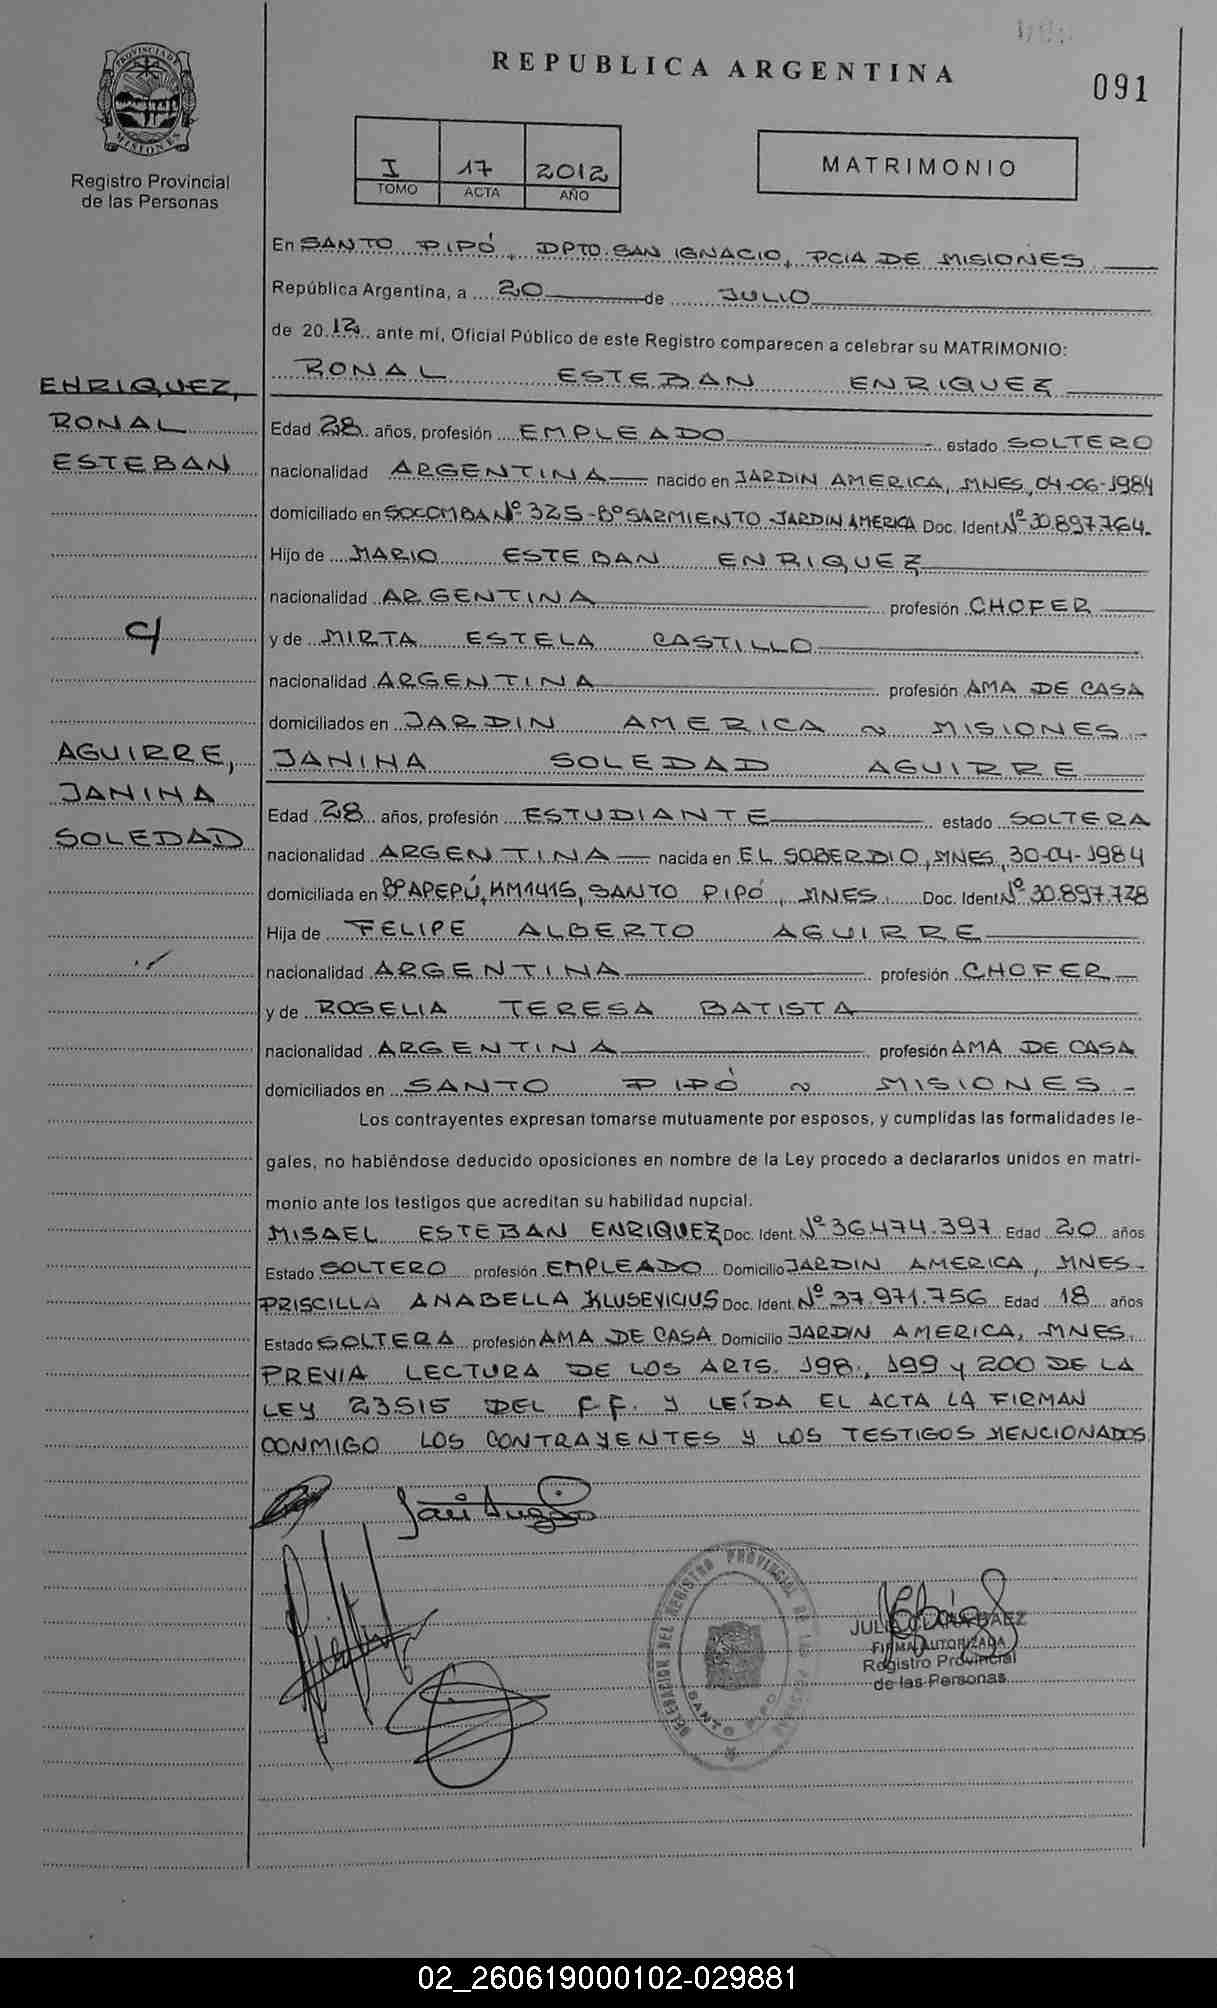 REPUBLICA ARGENTINA
091
PROVINCIA DE
MISIONES
Registro Provincial
de las Personas
I 17 2012
TOMO ACTA AÑO
MATRIMONIO
En SANTO PIPÓ, DPTO. SAN IGNACIO, PCIA DE MISIONES
República Argentina, a 20 de JULIO
de 2012 ante mí, Oficial Público de este Registro comparecen a celebrar su MATRIMONIO:
ENRIQUEZ,
RONAL
ESTEBAN
C/
AGUIRRE,
JANINA
SOLEDAD
RONAL ESTEBAN ENRIQUEZ
Edad 28 años, profesión EMPLEADO estado SOLTERO
nacionalidad ARGENTINA nacido en JARDIN AMERICA, MNES, 04-06-1984
domiciliado en SOCOMBA Nº 325-Bº SARMIENTO-JARDIN AMERICA Doc. Ident. Nº 30.897.764.
Hijo de MARIO ESTEBAN ENRIQUEZ
nacionalidad ARGENTINA profesión CHOFER
y de MIRTA ESTELA CASTILLO
nacionalidad ARGENTINA profesión AMA DE CASA
domiciliados en JARDIN AMERICA ~ MISIONES.-
JANINA SOLEDAD AGUIRRE
Edad 28 años, profesión ESTUDIANTE estado SOLTERA
nacionalidad ARGENTINA nacida en EL SOBERBIO, MNES, 30-04-1984
domiciliada en Bº APEPÚ, KM1415, SANTO PIPÓ, MNES. Doc. Ident. Nº 30.897.728
Hija de FELIPE ALBERTO AGUIRRE
nacionalidad ARGENTINA profesión CHOFER
y de ROGELIA TERESA BATISTA
nacionalidad ARGENTINA profesión AMA DE CASA
domiciliados en SANTO PIPÓ ~ MISIONES.-
Los contrayentes expresan tomarse mutuamente por esposos, y cumplidas las formalidades le-
gales, no habiéndose deducido oposiciones en nombre de la Ley procedo a declararlos unidos en matri-
monio ante los testigos que acreditan su habilidad nupcial.
MISAEL ESTEBAN ENRIQUEZ Doc. Ident. Nº 36.474.397 Edad 20 años
Estado SOLTERO profesión EMPLEADO Domicilio JARDIN AMERICA, MNES.
PRISCILLA ANABELLA KLUSEVICIUS Doc. Ident. Nº 37.971.756 Edad 18 años
Estado SOLTERA profesión AMA DE CASA Domicilio JARDIN AMERICA, MNES.
PREVIA LECTURA DE LOS ARTS. 198, 199 y 200 DE LA
LEY 23515 DEL C.C. Y LEÍDA EL ACTA LA FIRMAN
CONMIGO LOS CONTRAYENTES Y LOS TESTIGOS MENCIONADOS
DELEGACION DEL REGISTRO PROVINCIAL DE LAS PERSONAS
SANTO PIPO
JULIA CLARA BAEZ
FIRMA AUTORIZADA
Registro Provincial
de las Personas
02_260619000102-029881